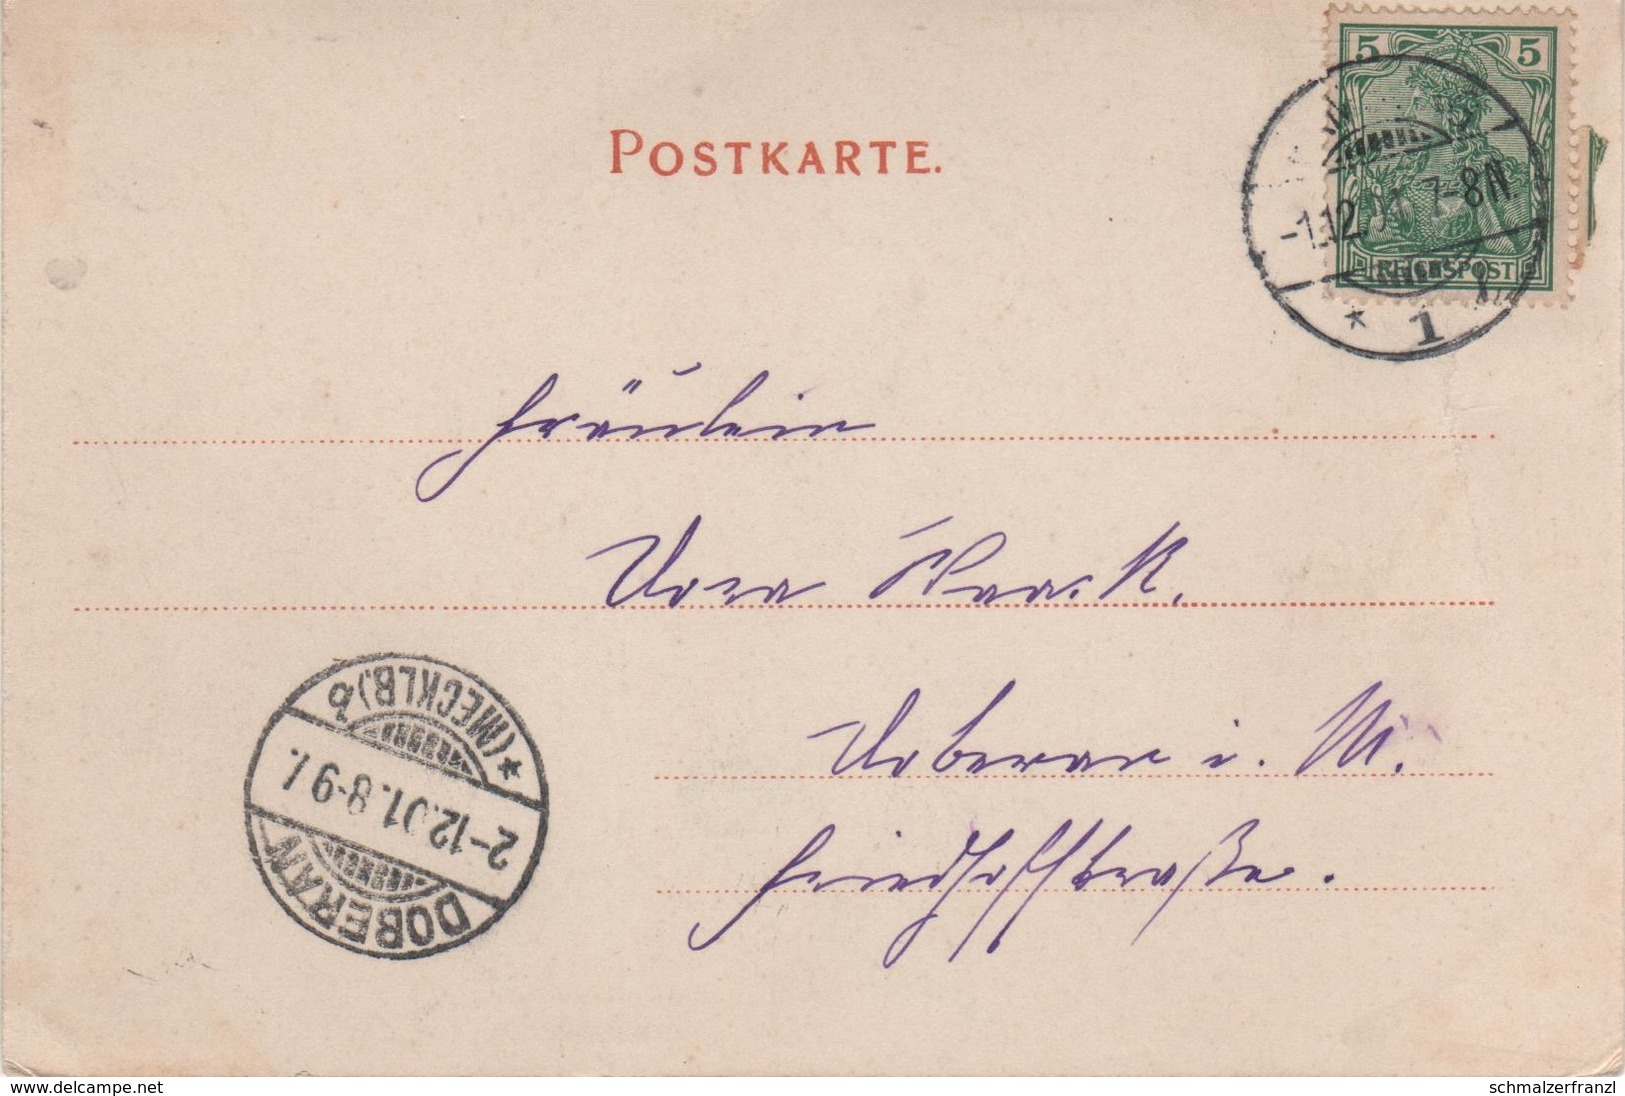 POSTKARTE.
5 5
-1.12.01. 7-8N.
REICHSPOST
* 1
Fräulein
Dora
Doberan i. M.
Friedhofstraße.
*(MECKLB) b
2-12.01. 8-9
DOBERAN
www.delcampe.net
schmalzerfranzl